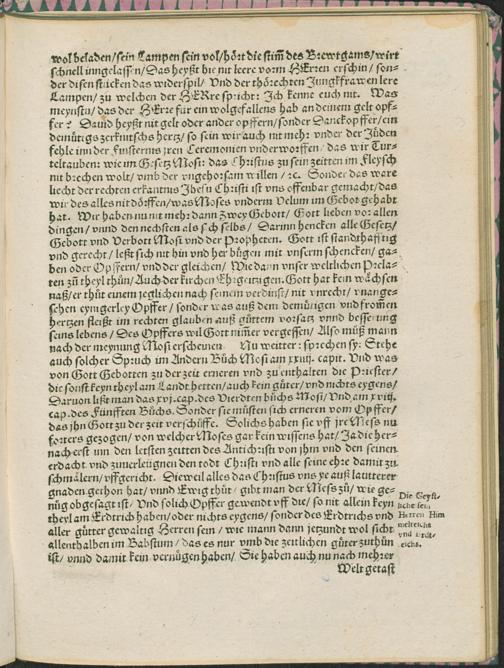 wol beladen/ sein Lampen sein vol/ hört die stim̃ des Brewtgams/ wirt
schnell inngelassen/ Das heyßt hie nit leere vorm HErren erschin/ son-
der disen stucken das widerspil/ Vnd der thörechten Jungkfrawen lere
Lampen/ zu welcher der HERre spricht: Ich kenne euch nit. Was
meynstu/ das der HErre für ein wolgefallens hab an deinem gelt opf-
fer? Dauid heyßt nit gelt oder ander opffern/ sonder Danckopffer/ ein
demütigs zerknutschs hertz/ so sein wir auch nit mehr vnder der Jüden
fehle inn der finsternis jren Ceremonien vnderworffen/ das wir Tur-
teltauben: wie im Gesetz Mosi: das Christus zu sein zeitten im fleysch
nit brechen wolt/ vmb der vngehorsam willen/ ꝛc. Sonder das ware
liecht der rechten erkantnus Jhesu Christi ist vns offenbar gemacht/ das
wir des alles nit dörffen/ was Moses vnderm Velum im Gebot gehabt
hat. Wir haben nu nit mehr dann zwey Gebott/ Gott lieben vor allen
dingen/ vnnd den nechsten als sich selbs/ Darinn hencken alle Gesetz/
Gebott vnd Verbott Mosi vnd der Propheten. Gott ist standthafftig
vnd gerecht/ leßt sich nit hin vnd her bügen mit vnserm schencken/ ga-
ben oder Opffern/ vnd der gleichen/ Wie dann vnser weltlichen Prela-
ten zü theyl thün/ Auch der kirchen Ehrgeitzigen. Gott hat kein wächsen
naß/ er thüt einem jeglichen nach seinem verdinst/ nit vnrecht/ vnange-
sehen eynigerley Opffer/ sonder was auß dem demütigen vnd from̃en
hertzen fleißt im rechten glauben auß güttem vorsatz vnnd besserung
seins lebens/ Des Opffers wil Gott nim̃er vergessen/ Also müß mann
nach der meynung Mosi erscheinen. Nu weitter: sprechen sy: Stehe
auch solcher Spruch im Andern Büch Mosi am xxiij. capit. Vnd was
von Gott Gebotten zu der zeit erneren vnd zu enthalten die Priester/
die sonst keyn theyl am Landt hetten/ auch kein güter/ vnd nichts eygens/
Daruon lißt man das xvj. cap. des Vierdten büchs Mosi/ Vnd am xviij.
cap. des Fünfften Büchs. Sonder sie müsten sich erneren vom Opffer/
das jhn Gott zu der zeit verschüffe. Solichs haben sie vff jre Mess nu
forters gezogen/ von welcher Moses gar kein wissens hat/ Ja die her-
nach erst inn den letsten zeitten des Antichristi von jhm vnd den seinen
erdacht vnd zuuerleügnen den todt Christi vnd alle seine ehre damit zu
schmälern/ vffgericht. Dieweil alles das Christus vns ye auß lautterer
gnaden gethon hat/ vnnd Ewig thüt/ gibt man der Mess zü/ wie ge-
nüg obgesagt ist/ Vnd solich Opffer gewendt vff die/ so nit allein keyn
theyl am Erdtrich haben/ oder nichts eygens/ sonder des Erdtrichs vnd
aller gütter gewaltig Herren sein/ wie mann dann jetzundt wol sicht
allenthalben im Babstum/ das es nur vmb die zeitlichen güter zuthün
ist/ vnnd damit kein vernügen haben/ Sie haben auch nu nach mehrer
Welt getast
Die Geyst-
liche sein
Herren Him
melreichs
vnd Erdt-
richs.